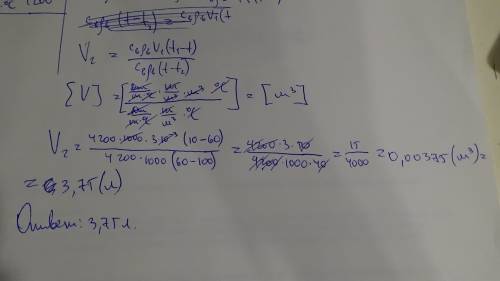 1200
cвρв(t-t₂) = cвρвV₁(t
V₂ = cвρвV₁(t₁-t) / cвρв(t-t₂)
[V] = [ Дж/кг·°C · кг/м³ · м³ · °C / Дж/кг·°C · кг/м³ · °C ] = [м³]
V₂ = 4200·1000·3·10⁻³(10-60) / 4200·1000(60-100) = 4200·3·50 / 4200·1000·40 = 15/4000 = 0,00375(м³) =
= 3,75(л)
Ответ: 3,75л.